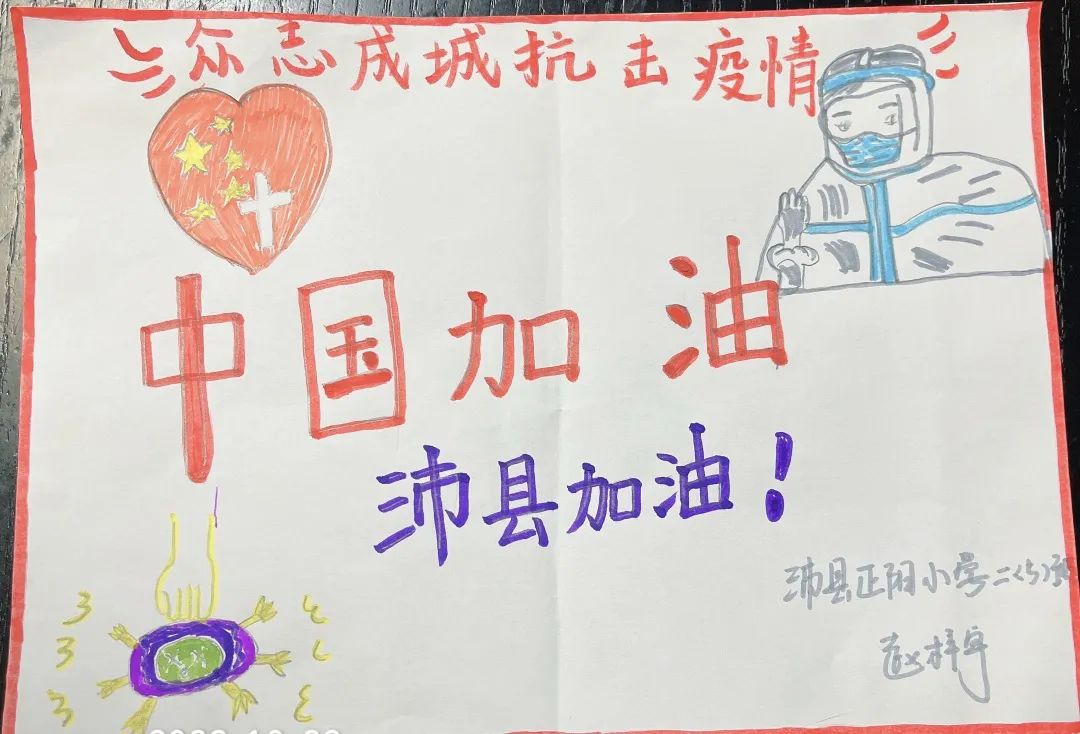 众志成城抗击疫情
中国加油
沛县加油！
沛县正阳小学二(5)班
赵梓